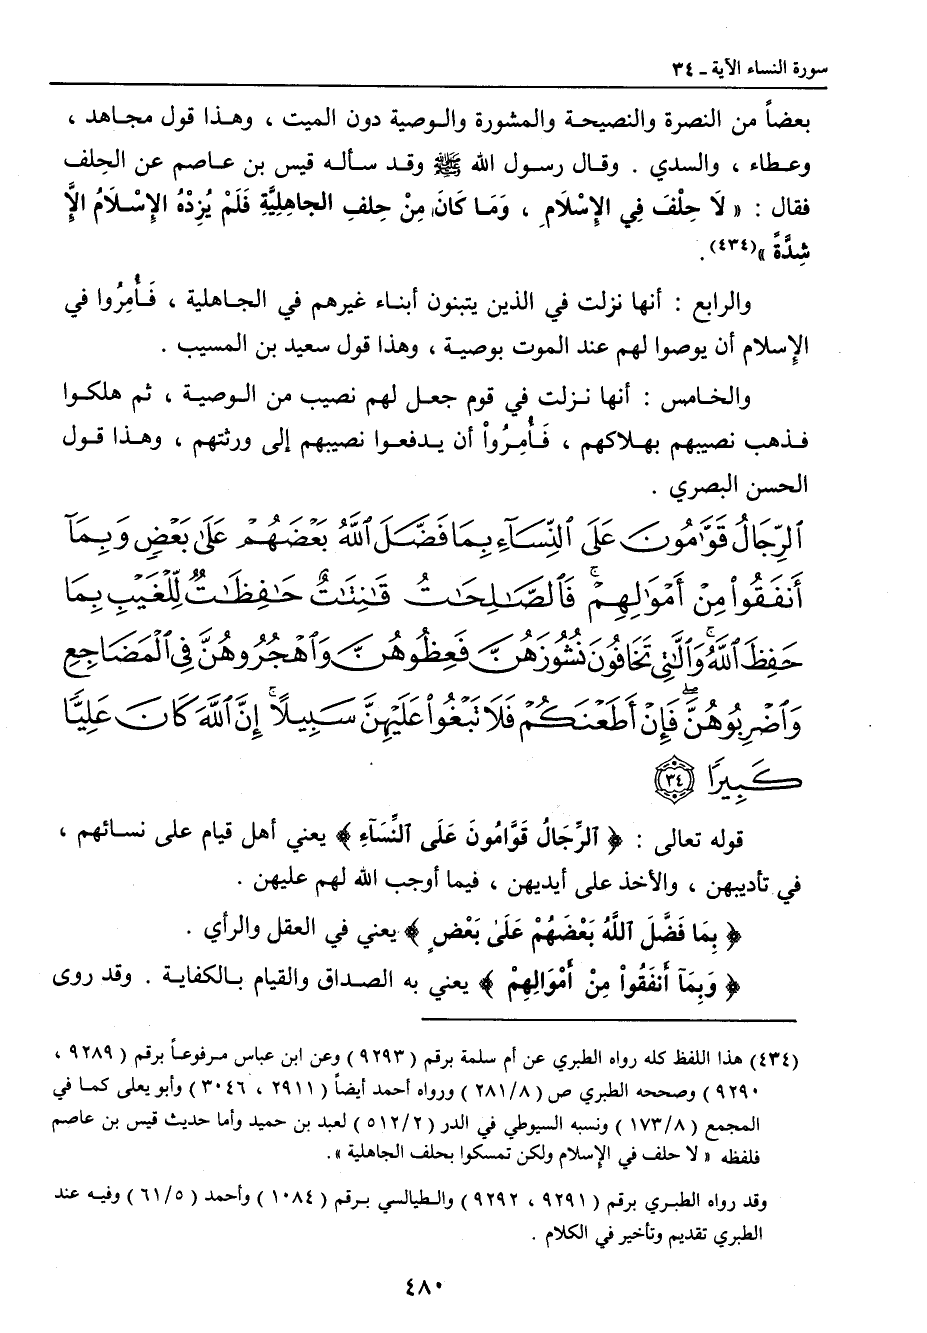 سورة النساء الآية ـ ٣٤
بعضاً من النصرة والنصيحة والمشورة والوصية دون الميت ، وهذا قول مجاهد ،
وعطاء ، والسدي . وقال رسول الله ﷺ وقد سأله قيس بن عاصم عن الحِلف
فقال : « لَا حِلْفَ فِي الإِسْلَامِ ، وَمَا كَانَ مِنْ حِلفِ الجاهِلِيَّةِ فَلَمْ يُزِدْهُ الإِسْلَامُ الإَّ
شِدَّةً »(٤٣٤).
والرابع : أنها نزلت في الذين يتبنون أبناء غيرهم في الجاهلية ، فَأُمِرُوا في
الإسلام أن يوصوا لهم عند الموت بوصية ، وهذا قول سعيد بن المسيب .
والخامس : أنها نزلت في قوم جعل لهم نصيب من الوصية ، ثم هلكوا
فذهب نصيبهم بهلاكهم ، فَأُمِرُواْ أن يدفعوا نصيبهم إلى ورثتهم ، وهذا قول
الحسن البصري .
ٱلرِّجَالُ قَوَّٰمُونَ عَلَى ٱلنِّسَآءِ بِمَا فَضَّلَ ٱللَّهُ بَعْضَهُمْ عَلَىٰ بَعْضٍ وَبِمَآ
أَنفَقُواْ مِنْ أَمْوَٰلِهِمْ ۚ فَٱلصَّٰلِحَٰتُ قَٰنِتَٰتٌ حَٰفِظَٰتٌ لِّلْغَيْبِ بِمَا
حَفِظَ ٱللَّهُ ۚ وَٱلَّٰتِى تَخَافُونَ نُشُوزَهُنَّ فَعِظُوهُنَّ وَٱهْجُرُوهُنَّ فِى ٱلْمَضَاجِعِ
وَٱضْرِبُوهُنَّ ۖ فَإِنْ أَطَعْنَكُمْ فَلَا تَبْغُواْ عَلَيْهِنَّ سَبِيلًا ۗ إِنَّ ٱللَّهَ كَانَ عَلِيًّا
كَبِيرًا ٣٤
قوله تعالى : ﴿ ٱلرِّجَالُ قَوَّامُونَ عَلَى ٱلنِّسَآءِ ﴾ يعني أهل قيام على نسائهم ،
في تأديبهن ، والأخذ على أيديهن ، فيما أوجب الله لهم عليهن .
﴿ بِمَا فَضَّلَ ٱللَّهُ بَعْضَهُمْ عَلَىٰ بَعْضٍ ﴾ يعني في العقل والرأي .
﴿ وَبِمَآ أَنفَقُواْ مِنْ أَمْوَالِهِمْ ﴾ يعني به الصداق والقيام بالكفاية . وقد روى
(٤٣٤) هذا اللفظ كله رواه الطبري عن أم سلمة برقم ( ٩٢٩٣ ) وعن ابن عباس مرفوعاً برقم ( ٩٢٨٩ ،
٩٢٩٠ ) وصححه الطبري ص ( ٢٨١/٨ ) ورواه أحمد أيضاً ( ٢٩١١ ، ٣٠٤٦ ) وأبو يعلى كما في
المجمع ( ١٧٣/٨ ) ونسبه السيوطي في الدر ( ٥١٢/٢ ) لعبد بن حميد وأما حديث قيس بن عاصم
فلفظه « لا حلف في الإسلام ولكن تمسكوا بحلف الجاهلية ».
وقد رواه الطبري برقم ( ٩٢٩١ ، ٩٢٩٢ ) والطيالسي برقم ( ١٠٨٤ ) وأحمد ( ٦١/٥ ) وفيه عند
الطبري تقديم وتأخير في الكلام .
٤٨٠